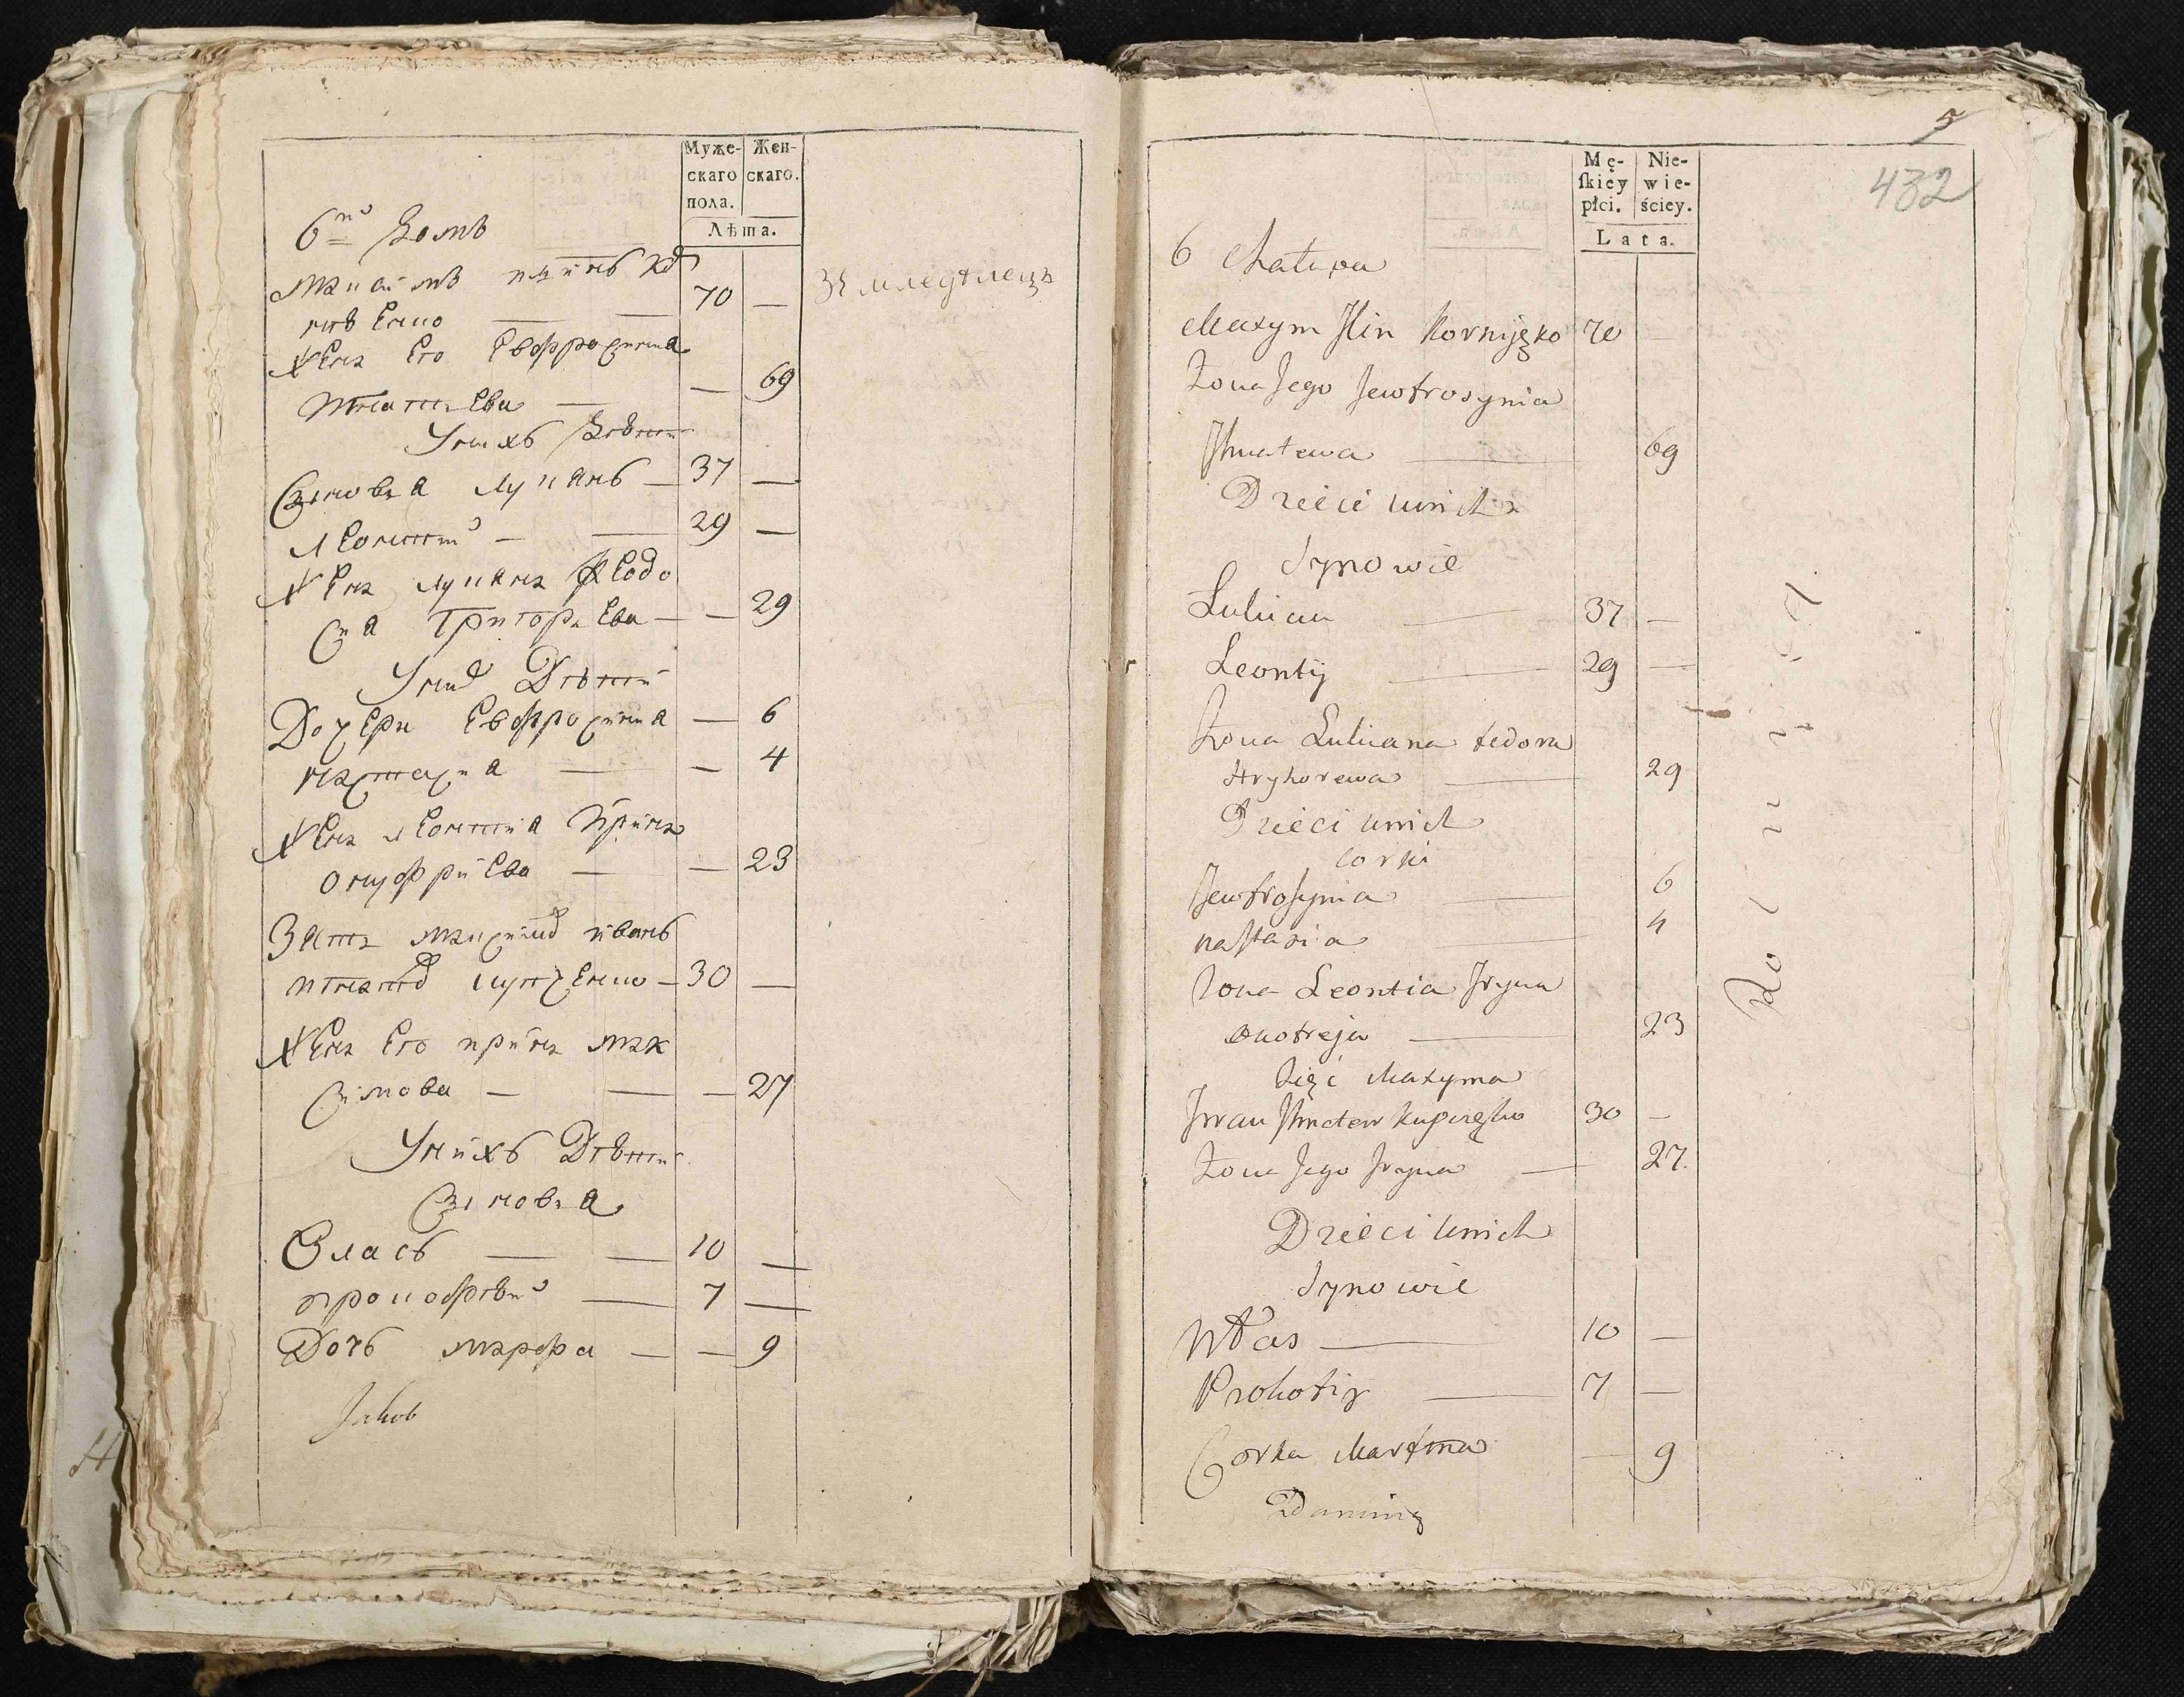 Муже-
скаго
пола.
Жен-
скаго.
Лѣта.
6й Домъ
Максимъ 70 —
Земледѣлецъ
Жена Его Евфросиния
Игнатьева — — 69
У нихъ Дѣти
Сыновья Лукянъ — 37 —
Леонтий — — 29 —
Жена Лукяна Феодо
сия Григорьева — — 29
У них Дѣти
Дочери Евфросиния — 6
Настасия — — 4
Жена Леонтия Ирина
Онуфриева — — 23
Зять Максима Иванъ
30 —
Жена Его Ирина Мак
симова — — — 27
У нихъ Дѣти
Сыновья
Власъ — — 10 —
Прокофѣий — 7 —
Дочь Марфа — — 9
Jakob
5
432
Mę-
ſkiéy
płci.
Nie-
wie-
ściey.
Lata.
6 Chatupa
Maxym Ilin Kornijęko 70
Zona Jego Jewfrosynia
Jhnatewa — 69
Dzieci unich
Synowie
Lukian — 37 —
Leontÿ — 29 —
Zona Lukiana fedora
Hryhorewa — 29
Dzieci unich
Corki
Jewfroſynia — 6
naſtasia — 4
Zona Leontia Jryna
Onofreja — 23
Zięć Maxyma
Jwan Jhnatew 30 —
Zona Jego Jryna — 27.
Dzieci unich
Synowie
Włas — 10 —
Prokofiy — 7 —
Corka Marfma — 9
Rolnicÿ